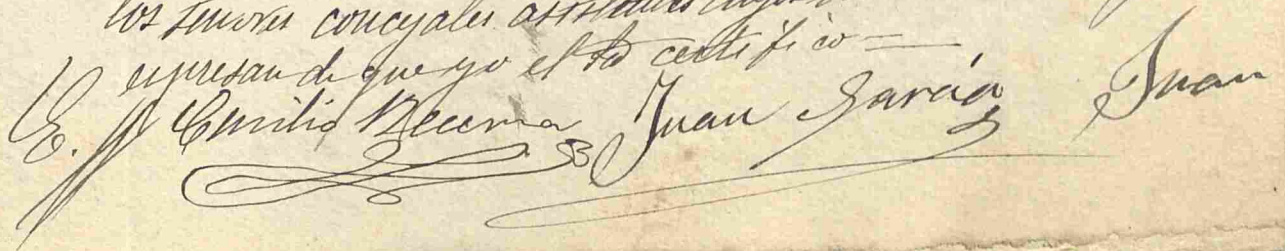 los señores concejales asistentes cuyos
expresan de que yo el Srio certifico =
E. Emilio Becerra Juan García Juan